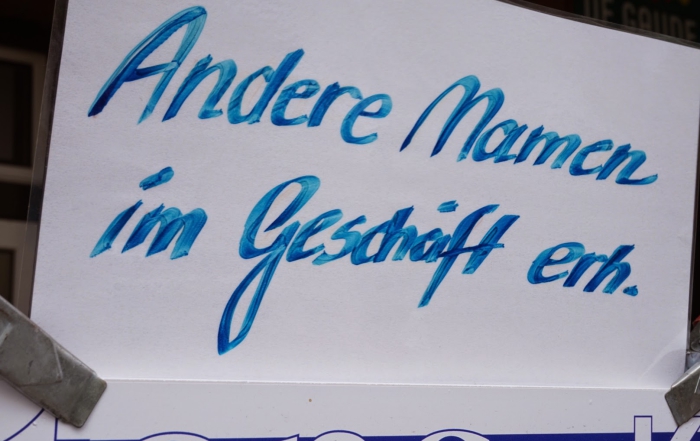 Andere Namen
im Geschäft erh.